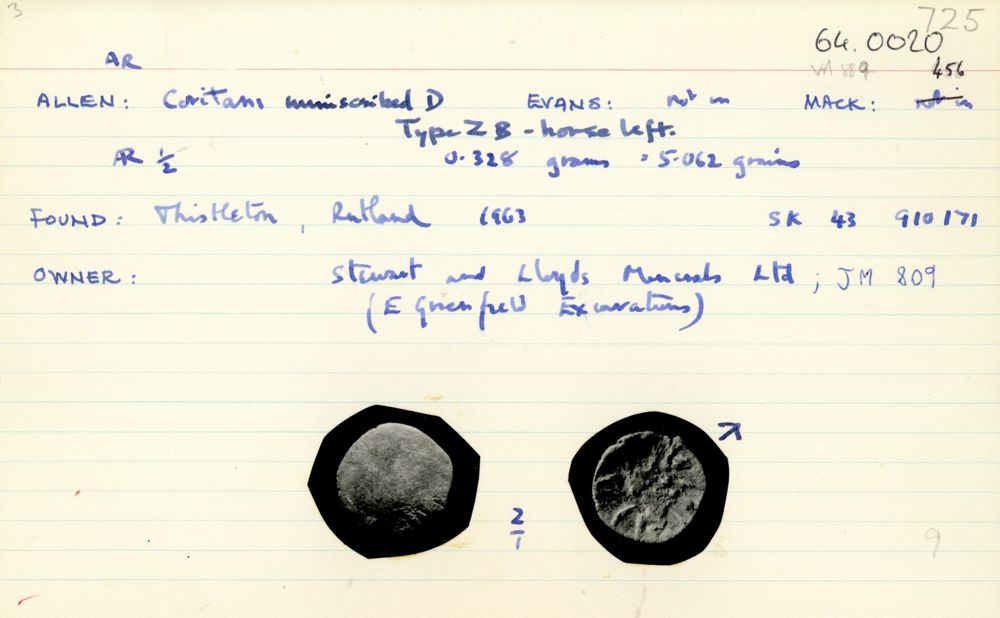 3
725
64.0020
AR
VA 889 456
ALLEN: Coritani uninscribed D EVANS: not in MACK: not in
Type Z B - horse left.
AR ½ 0.328 grams = 5.062 grains
FOUND: Thistleton, Rutland 1963 SK 43 910171
OWNER: Stewart and Lloyds Minerals Ltd; JM 809
(E Greenfield Excavations)
↗
2/1
9